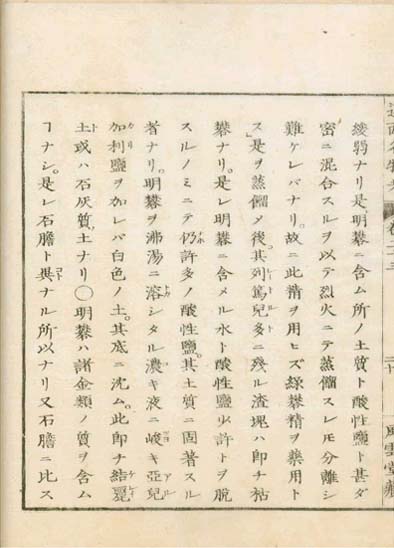 緩弱ナリ是レ明礬ニ含ム所ノ土質ト酸性鹽ト甚ダ
密ニ混合スルヲ以テ烈火ニテ蒸餾スレモ分離シ
難ケレバナリ。故ニ此精ヲ用ヒズ綠礬精ヲ藥用ト
ス」是ヲ蒸餾メ後。其列篤兒多ニ殘ル渣塊ハ卽チ枯
礬ナリ。是レ明礬ニ含メル水ト酸性鹽少許トヲ脫
スルノミニテ仍許多ノ酸性鹽。其土質ニ固著スル
者ナリ。明礬ヲ沸湯ニ溶シタル濃キ液ニ峻キ亞兒
加利鹽ヲ加レバ白色ノ土。其底ニ沈ム。此卽チ結麗
土或ハ石灰質ノ土ナリ〇明礬ハ諸金類ノ質ヲ含ム
ヿナシ。是レ石膽ト異ナル所以ナリ又石膽ニ比ス
風雲堂藏